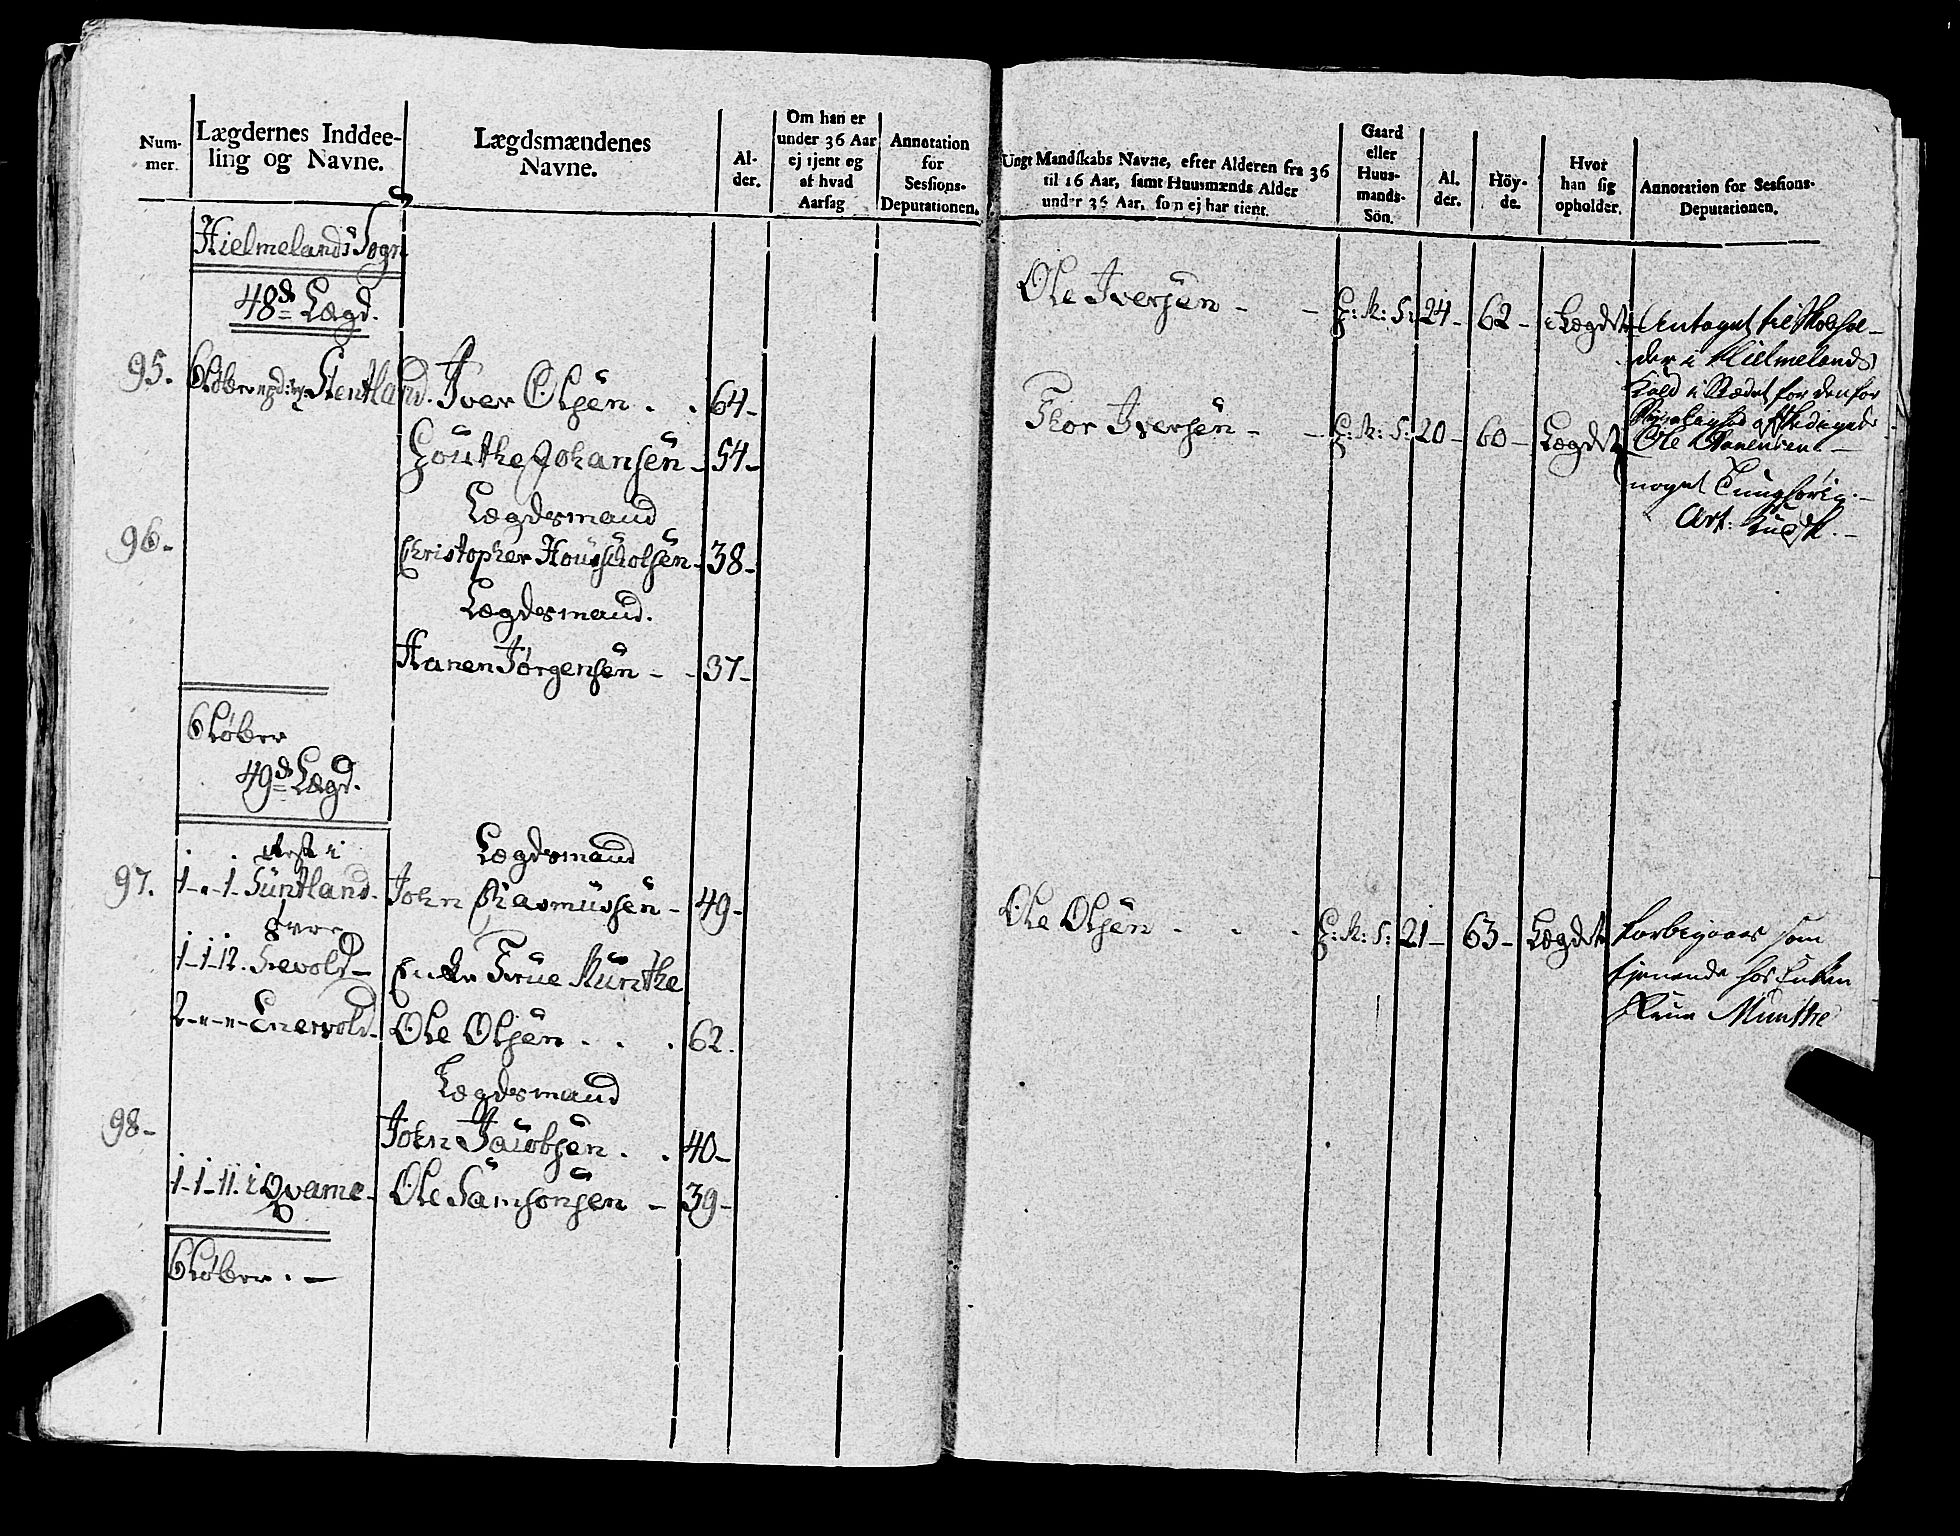 Num-
mer.
Lægdernes Inddee-
ling og Navne.
Lægdsmændenes
Navne.
Al-
der.
Om han er
under 36 Aar
ej tjent og
af hvad
Aarsag
Annotation
for
Sessions-
Deputationen.
Hielmelands Sogn
48de Lægd.
95. 6 Løber Stentland. Iver Olsen . . 64-
Gouthe Johansen - 54-
Lægdsmand
96- Christopher Housholsen - 38-
Lægdsmand.
Hanen Jørgensen - - 37-
6 Løber
49de Lægd.
Lægdsmand
97. 1-"-1. Suntland. John Rasmussen - 49-
1-1-12. Enke Frue Munthe
2-"-"- Enervold. Ole Olsen . . . 62.
Lægdsmand
98- John Jacobsen . . 40-
1-1-11. i Qvame- Ole Samsonsen - 39-
6 Løber . -
Ungt Mandskabs Navne, efter Alderen fra 36
til 16 Aar, samt Huusmænds Alder
under 36 Aar, som ej har tient.
Gaard
eller
Huus-
mands-
Sön.
Al-
der.
Höy-
de.
Hvor
han sig
opholder.
Annotation for Sessions-
Deputationen.
Ole Iversen - - G: M: S: 24- 62- i Lægdet Antaget til Skolehol-
der i Hielmelands
Kald i Stædet for den for
Ole
Thor Iversen - - G: M: S: 20- 60- Lægdet
noget Tunghørig. -
Art: Kudsk. -
Ole Olsen - - - G: M: S: 21- 63- Lægdet forbigaaes som
tjenende hos Enken
Frue Munthe